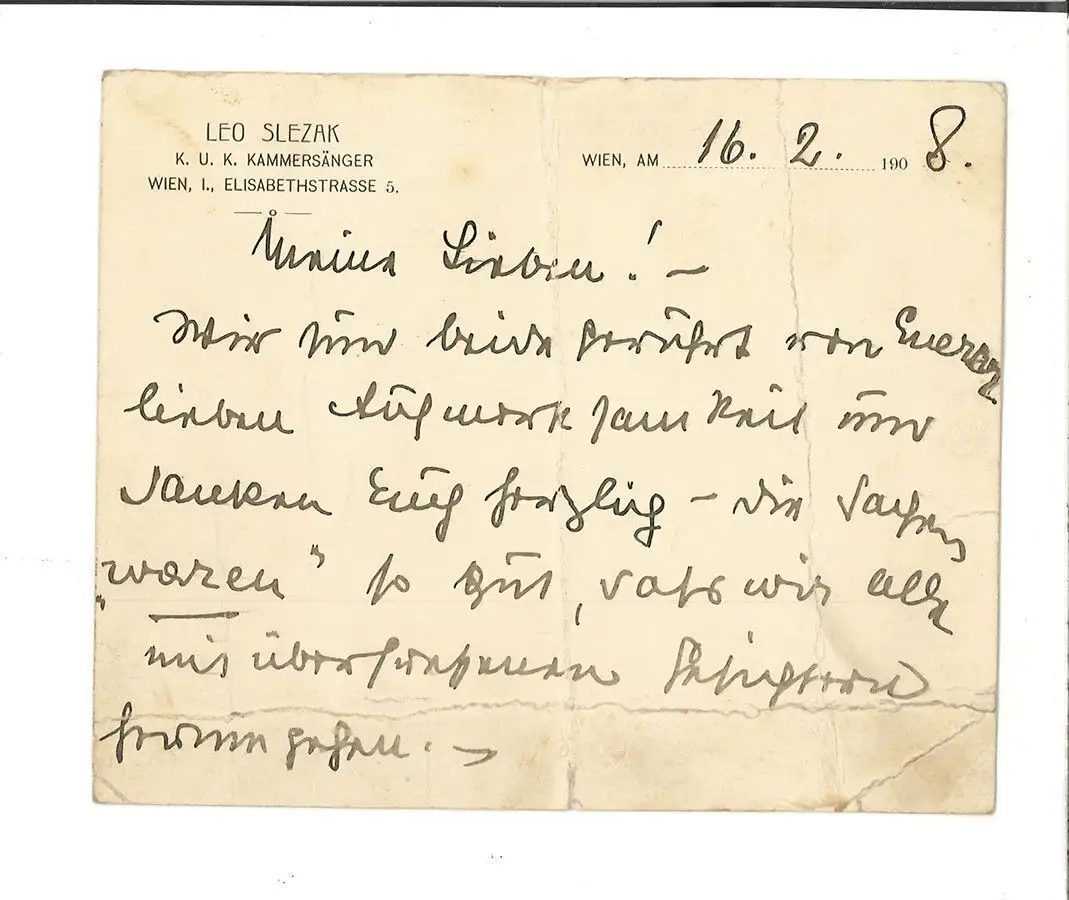 LEO SLEZAK
K. U. K. KAMMERSÄNGER
WIEN, I., ELISABETHSTRASSE 5.
WIEN, AM 16. 2. 1908.
Meine Lieben! –
Wir sind beide gerührt von Euerer
lieben Aufmerksamkeit und
danken Euch herzlich – die Sachen
"waren" so gut, dass wir alle
mit überfressenen Gesichtern
herumgehen. –